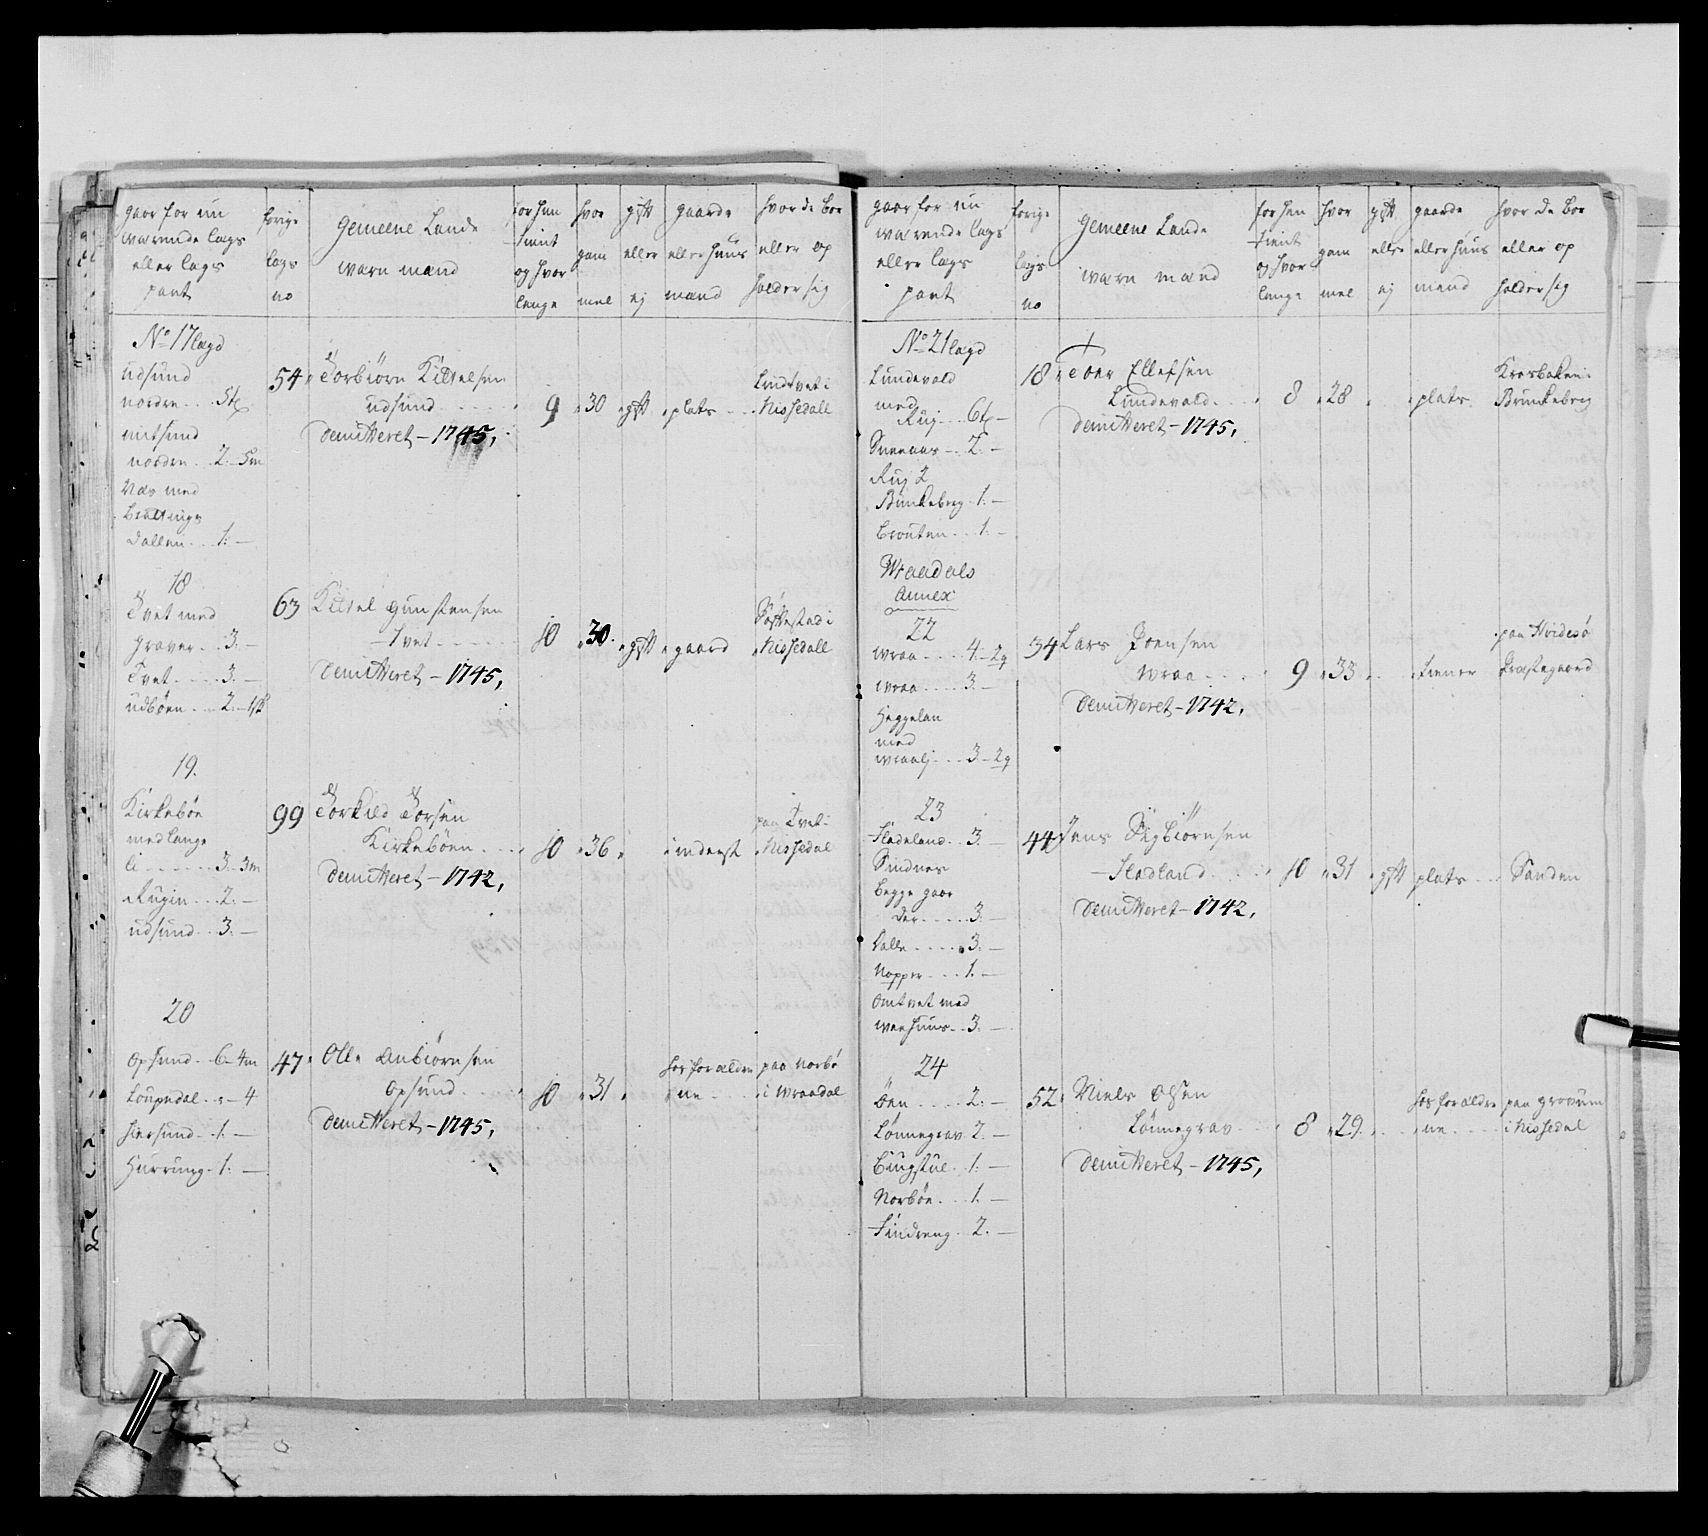 gaar for nu
warende lægs
eller lægs
part
forige
lægs
no
Gemeene Lande
wærn mænd
for hen
tient
og hvor
længe
hvor
gam
mel
gift
eller
ej
gaards
eller huus
mænd
hvor de bor
eller op
holder sig
No 17 lægd
udsund
norden ... 5
mitsund
norden .. 2 - 5m
Næs med
dallen ... 1. -
54
Torbiørn Kittelsen
udsund
Demitteret - 1745,
9
30
gift
plats
Lindtvet i
Nissedall
18
Tvet med
graver .. 3. -
Tvet .... 3. -
udbøen .. 2. -
63
Kittel gunstensen
Tvet
Demitteret - 1745,
10
30
gift
gaard
i
Nissedall
19.
Kirkebøe
med lange
li ..... 3. 3m
Rugin ... 2. -
udsund .. 3. -
99
Torkild Torsen
Kirkebøen
Demitteret - 1742,
10
36
inderst
paa Tvet i
Nissedal
20
opsund .. 6 - 4m
Loupedal .. - 4
hiersund . 1. -
Hurrung . 1. -
47
Olle anbiørnsen
opsund
Demitteret - 1745,
10
31
hos foræld re
ne
paa norbø
i wraadal
gaar for nu
warende lægs
eller lægs
part
forige
lægs
no
Gemeene Lande
wærn mænd
for hen
tient
og hvor
længe
hvor
gam
mel
gift
eller
ej
gaards
eller huus
mænd
hvor de bor
eller op
holder sig
No 21 lægd
Lundevald
med
Ruj ... 6
.. 2. -
Ruj 2
Brunkeberg 1. -
brouten .. 1. -
18
Toer Ellefsen
Lundevald
Demitteret - 1745,
8
28
plats
Krosbaken i
Brunkeberg
Wraadals
Annex
22
wraa .... 4. - 2q
wraa .... 3. -
Heggelan
med
wraalj ... 3. - 2q
34
Lars Joensen
wraa
Demitteret - 1742,
9
33
tiener
paa Hvidesø
Præstegaard
23
Fladeland .. 3. -
Sindnes
begge gaar
der .... 3. -
Dalle .... 3. -
Napper ... 1. -
omtvet med
.. 3. -
44
Jens Sigbiørnsen
Fladland
Demitteret - 1742,
10
31
gift
plats
Sanden
24
Øen .... 2. -
Lønnegrav 2. -
Bingstue . 1. -
Norbøe .. 1. -
Findreng . 2. -
52
Niels Olsen
Lønnegrav
Demitteret - 1745,
8
29
hos forældre
ne
paa grovum
i Nissedal